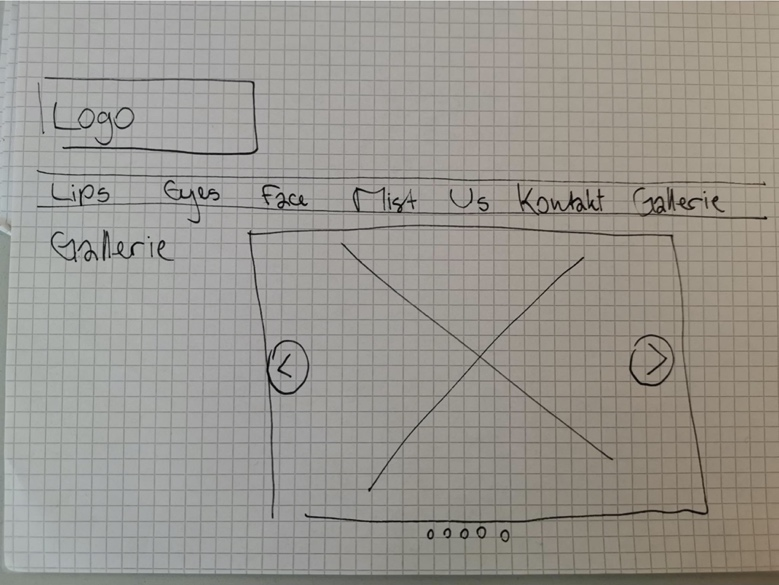 Logo
Lips Eyes Face Mist Us Kontakt Gallerie
Gallerie
< >